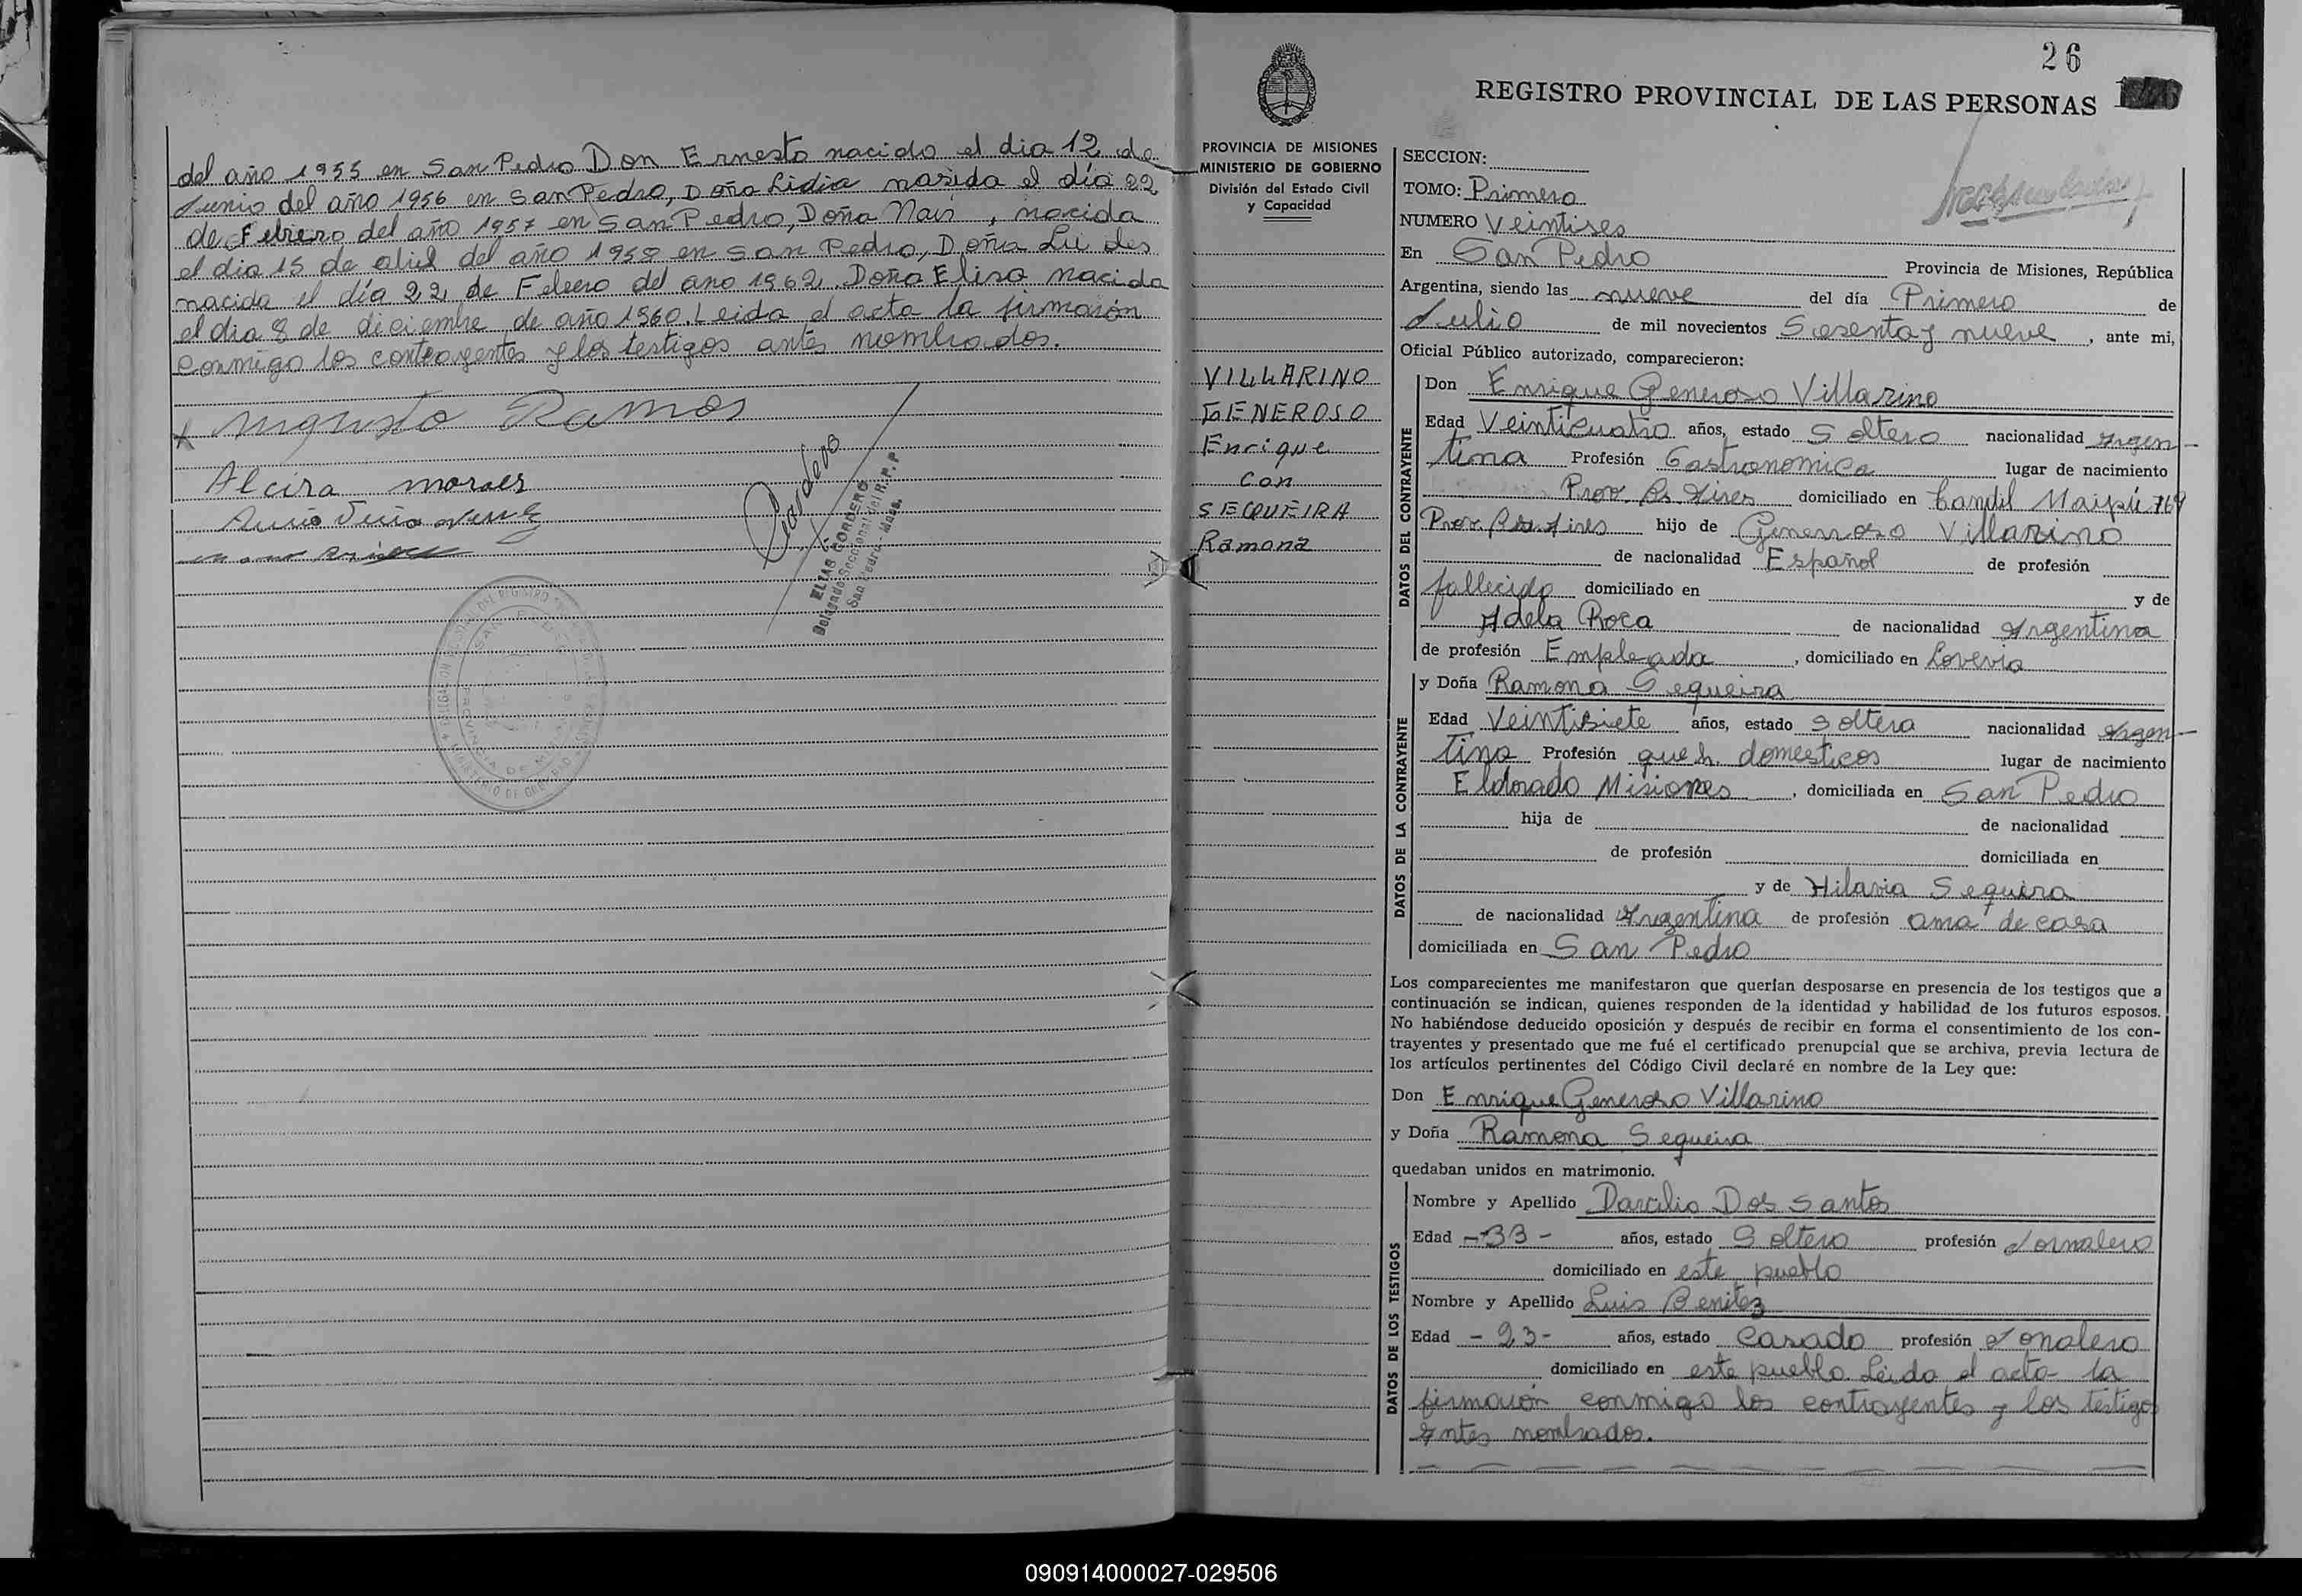 del año 1955 en San Pedro Don Ernesto nacido el dia 12 de
Junio del año 1956 en San Pedro, Doña Lidia nasida el día 22
de Febrero del año 1957 en San Pedro, Doña Nair, nacida
el dia 15 de abril del año 1958 en San Pedro, Doña Lu des
nacida el día 22 de Febrero del ano 1962. Doña Elisa nacida
el dia 8 de diciembre de año 1960. Leida el acta la firmarón
conmigo los contrayentes y los testigos antes nombrados.
Augusto Ramos
Alcira moraes
Cordero
ELIAS CORDERO
Delegado Seccional del R.P.P
San Pedro - Mnes.
PROVINCIA DE MISIONES
MINISTERIO DE GOBIERNO
División del Estado Civil
y Capacidad
VILLARINO
GENEROSO
Enrique
Con
SEQUEIRA
Ramona
26
REGISTRO PROVINCIAL DE LAS PERSONAS
SECCION:
TOMO: Primero
NUMERO Veintises
En San Pedro Provincia de Misiones, República
Argentina, siendo las nueve del día Primero de
Julio de mil novecientos Sesenta y nueve, ante mi,
Oficial Público autorizado, comparecieron:
DATOS DEL CONTRAYENTE
Don Enrique Generoso Villarino
Edad Veinticuatro años, estado Soltero nacionalidad Argen-
tina Profesión Gastronomica lugar de nacimiento
Prov. Bs Aires domiciliado en Tandil Maipú 769
Prov. Bs. Aires hijo de Generoso Villarino
de nacionalidad Español de profesión
fallecido domiciliado en y de
Adela Roca de nacionalidad Argentina
de profesión Empleada, domiciliado en Loveria
DATOS DE LA CONTRAYENTE
y Doña Ramona Sequeira
Edad Veintisiete años, estado Soltera nacionalidad Argen-
tina Profesión queh. domesticos lugar de nacimiento
Eldorado Misiones, domiciliada en San Pedro
hija de de nacionalidad
de profesión domiciliada en
y de Hilaria Sequira
de nacionalidad Argentina de profesión ama de casa
domiciliada en San Pedro
Los comparecientes me manifestaron que querían desposarse en presencia de los testigos que a
continuación se indican, quienes responden de la identidad y habilidad de los futuros esposos.
No habiéndose deducido oposición y después de recibir en forma el consentimiento de los con-
trayentes y presentado que me fué el certificado prenupcial que se archiva, previa lectura de
los artículos pertinentes del Código Civil declaré en nombre de la Ley que:
Don Enrique Generoso Villarino
y Doña Ramona Sequeira
quedaban unidos en matrimonio.
DATOS DE LOS TESTIGOS
Nombre y Apellido Darcilio Dos Santos
Edad -33- años, estado Soltero profesión Jornalero
domiciliado en este pueblo
Nombre y Apellido Luis Benitez
Edad -23- años, estado Casado profesión Jonalero
domiciliado en este pueblo Leida el acta la
firmarón conmigo los contrayentes y los testigos
antes nombrados.
090914000027-029506